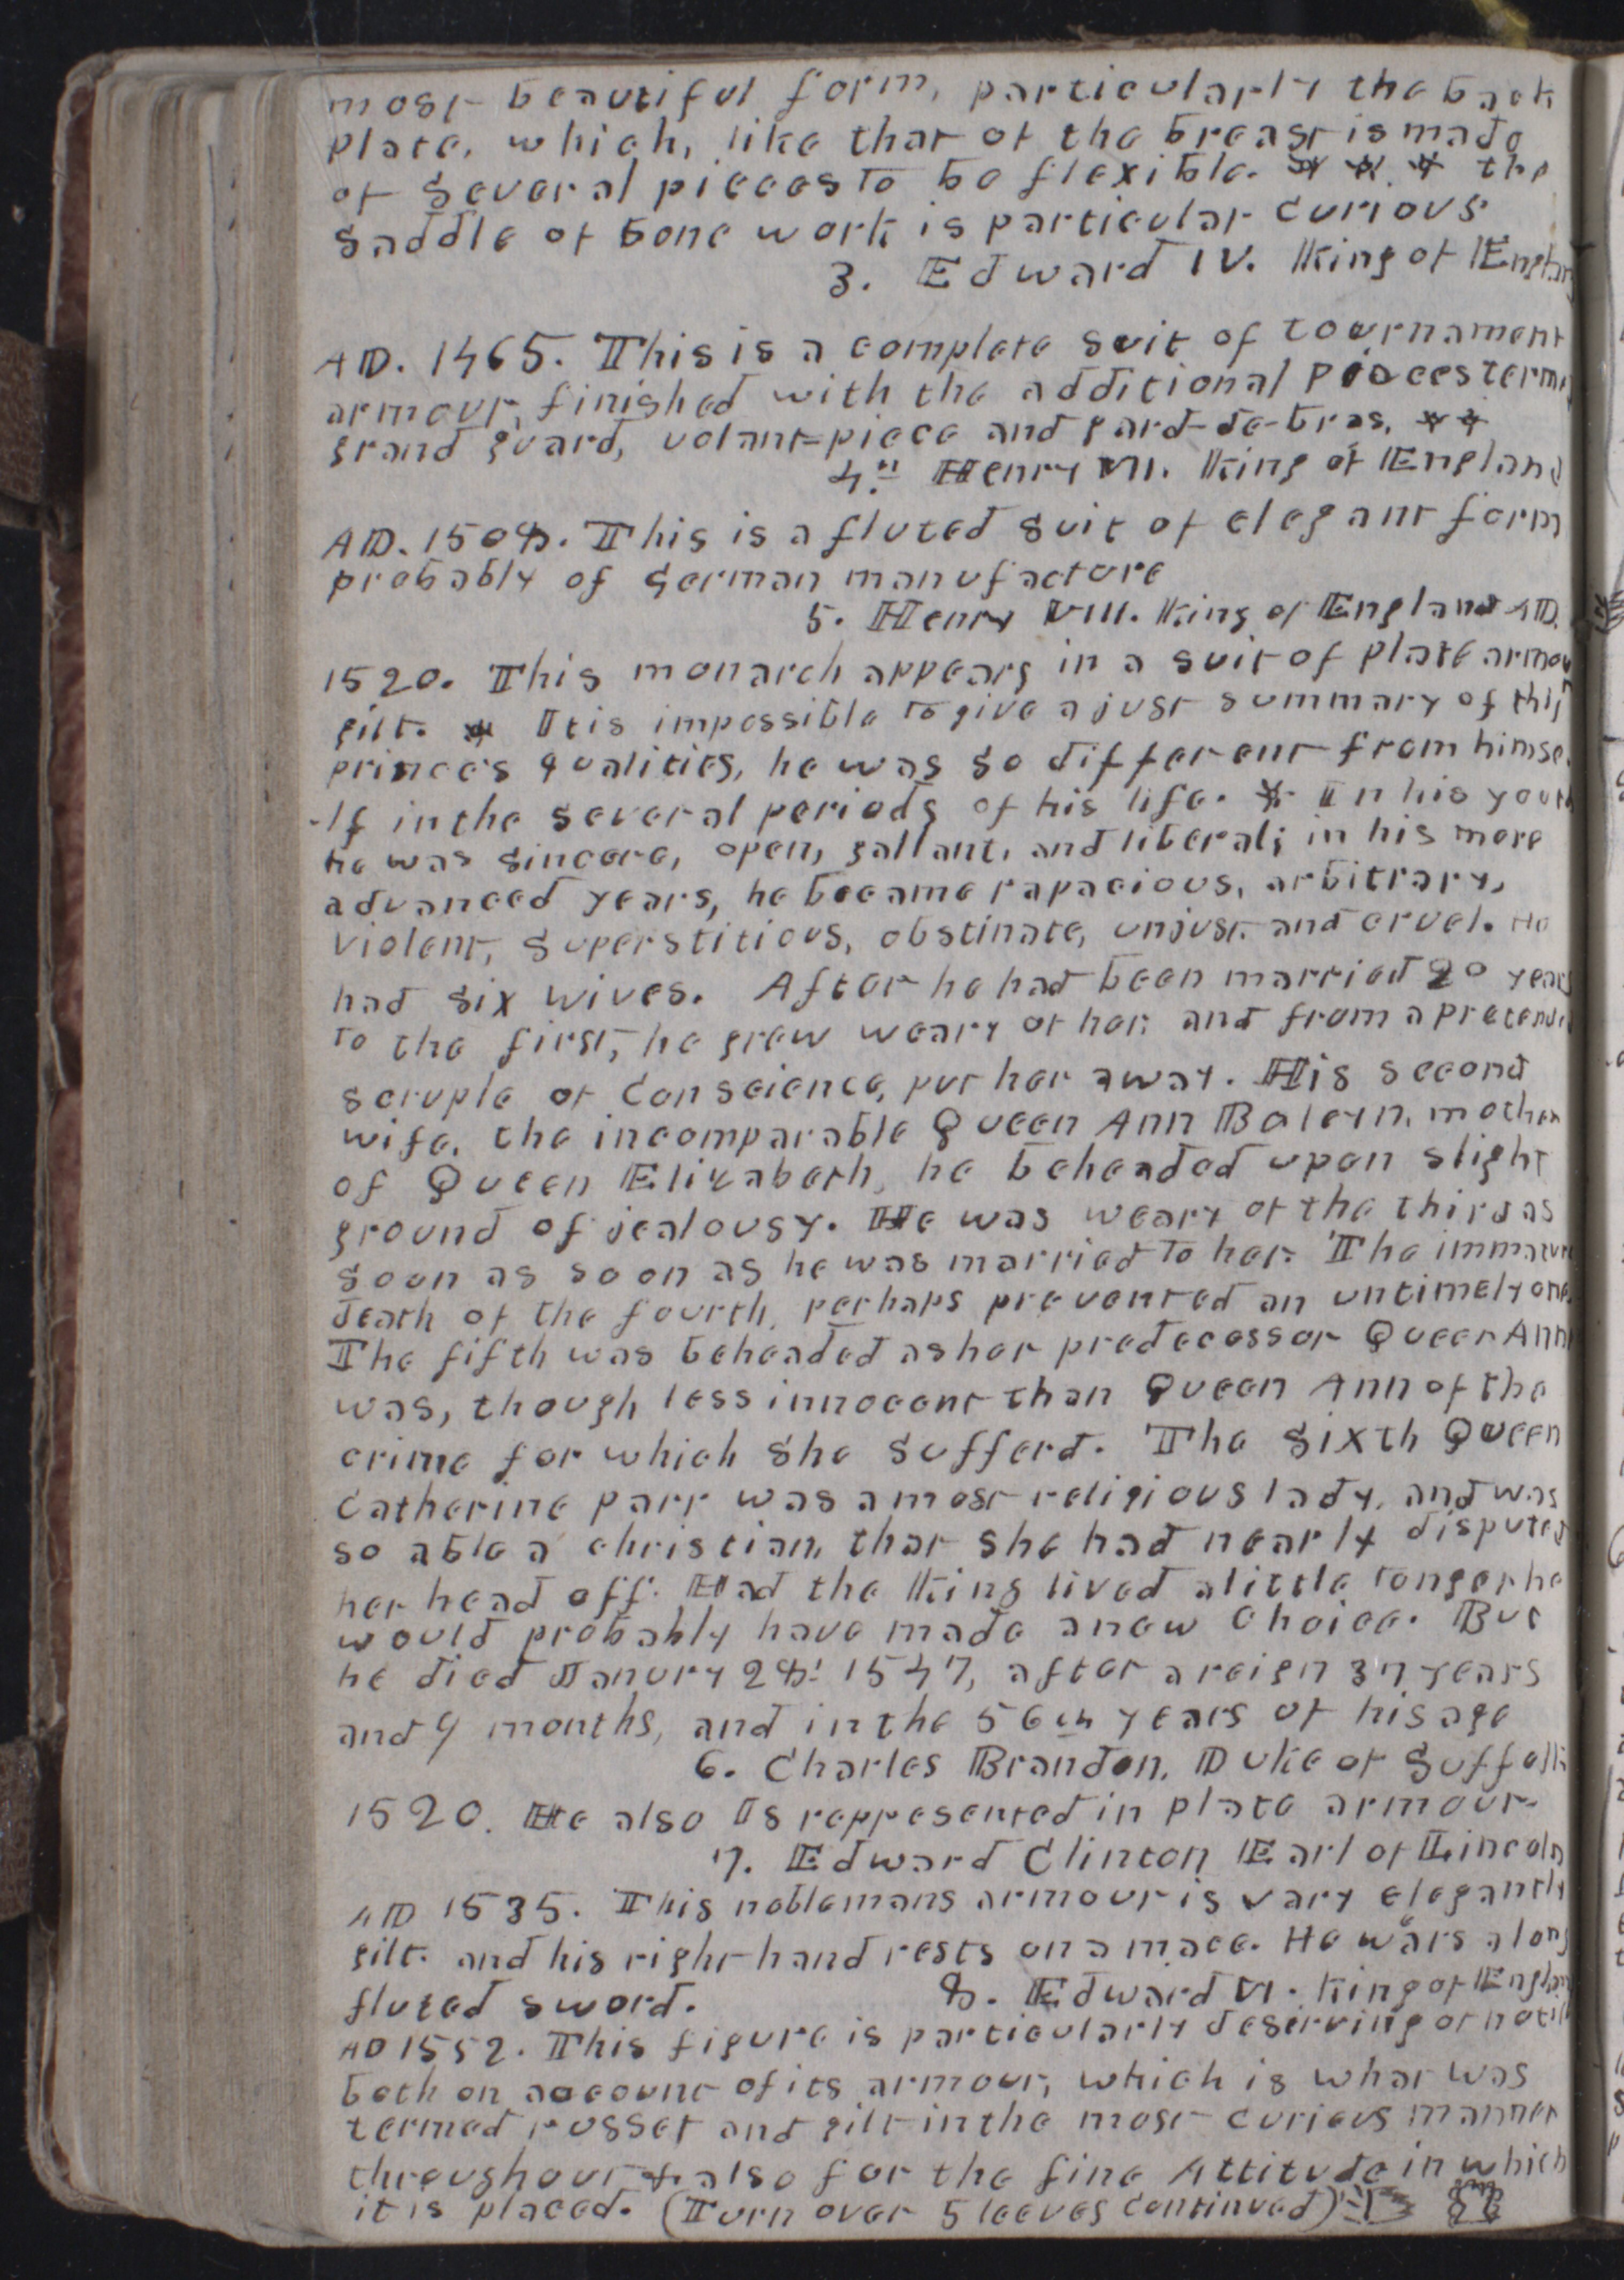 most beautiful form, particularly the back
plate, which, like that of the breast is made
of several pieces to be flexible. * * * the
saddle of bone work is particular curious
3. Edward IV. King of Englan
AD. 1465. This is a complete suit of tournament
armour, finished with the additional pieces term
grand guard, volant=piece and gard-de-bras. * *
4." Henry VII. King of England
AD. 1508. This is a fluted suit of elegant form
probably of german manufacture
5. Henry VIII. King of England AD.
1520. This monarch appears in a suit of plate armou
gilt. * It is impossible to give a just summary of this
prince's qualities, he was so different from himse
-lf in the several periods of his life. * In his youth
he was sincere, open, gallant, and liberal; in his more
advanced years, he became rapacious, arbitrary,
violent, superstitious, obstinate, unjust, and cruel. He
had six wives. After he had been married 20 years
to the first, he grew weary of her; and from a pretende
scruple of Conscience, put her away. His second
wife, the incomparable Queen Ann Boleyn, mother
of Queen Elizabeth, he beheaded upon slight
ground of jealousy. He was weary of the third as
soon as soon as he was married to her. The immature
death of the fourth, perhaps prevented an untimely one.
The fifth was beheaded as her predecessor Queen Ann
was, though less innocent than Queen Ann of the
crime for which she sufferd. The sixth Queen
Catherine parr was a most religious lady, and was
so able a christian, that she had nearly disputed
her head off. Had the King lived a little longer he
would probably have made a new Choice. But
he died Janury 28: 1547, after a reign 37 years
and 9 months, and in the 56th years of his age
6. Charles Brandon, Duke of Suffolk
1520. He also Is reppesented in plate armour.
7. Edward Clinton Earl of Lincoln
AD 1535. This noblemans armour is vary elegantly
gilt. and his right hand rests on a mace. He wears a long
fluted sword.
8. Edward VI. King of Englan
AD 1552. This figure is particularly deserving of notic
both on account of its armour, which is what was
termed russet and gilt in the most curious manner
throughout & also for the fine Attitude in which
it is placed. (Turn over 5 leeves Continued)